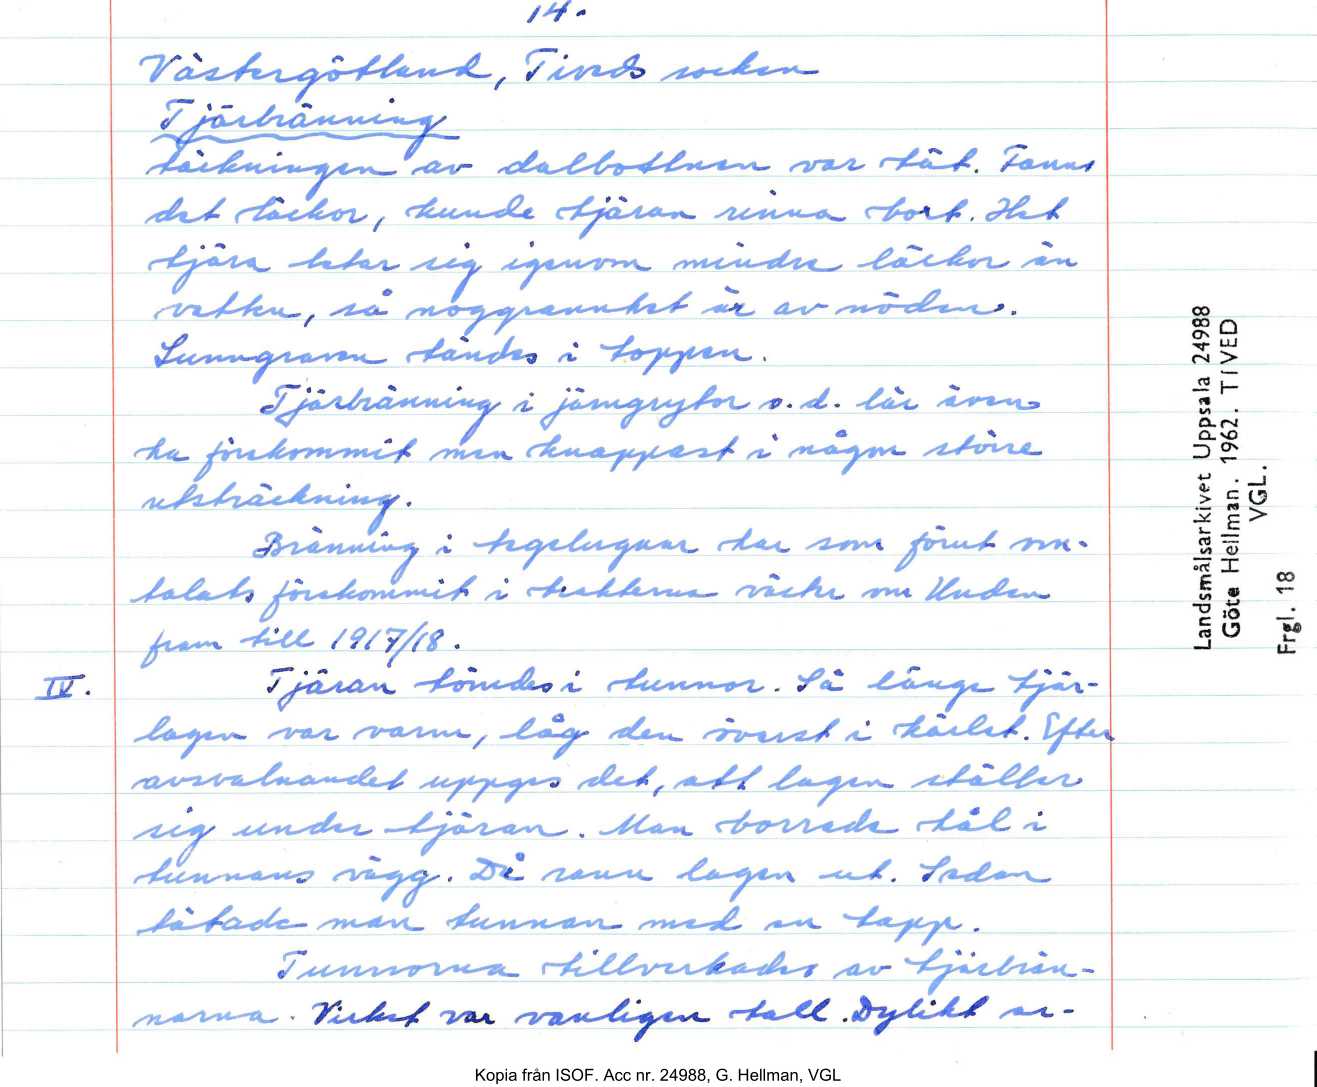 14.
Västergötland, Tiveds socken
Tjärbränning
täckningen av dalbottnen var tät. Fanns
det läckor, kunde tjäran rinna bort. Het
tjära letar sig igenom mindre läckor än
vatten, så noggrannhet är av nöden.
Lunngraven tändes i toppen.
Tjärbränning i järngrytor o.d. lär även
ha förekommit men knappast i någon större
utsträckning.
Bränning i tegelugnar har som förut om-
talats förekommit i trakterna väster om Unden
fram till 1917/18.
IV. Tjäran tömdes i tunnor. Så länge tjär-
lagen var varm, låg den överst i kärlet. Efter
avsvalnandet uppges det, att lagen ställer
sig under tjäran. Man borrade hål i
tunnans vägg. Då rann lagen ut. Sedan
tätade man tunnan med en tapp.
Tunnorna tillverkades av tjärbrän-
narna. Virket var vanligen tall. Dylikt ar-
Landsmålsarkivet Uppsala 24988
Göte Hellman. 1962. TIVED
VGL.
Frgl. 18
Kopia från ISOF. Acc nr. 24988, G. Hellman, VGL